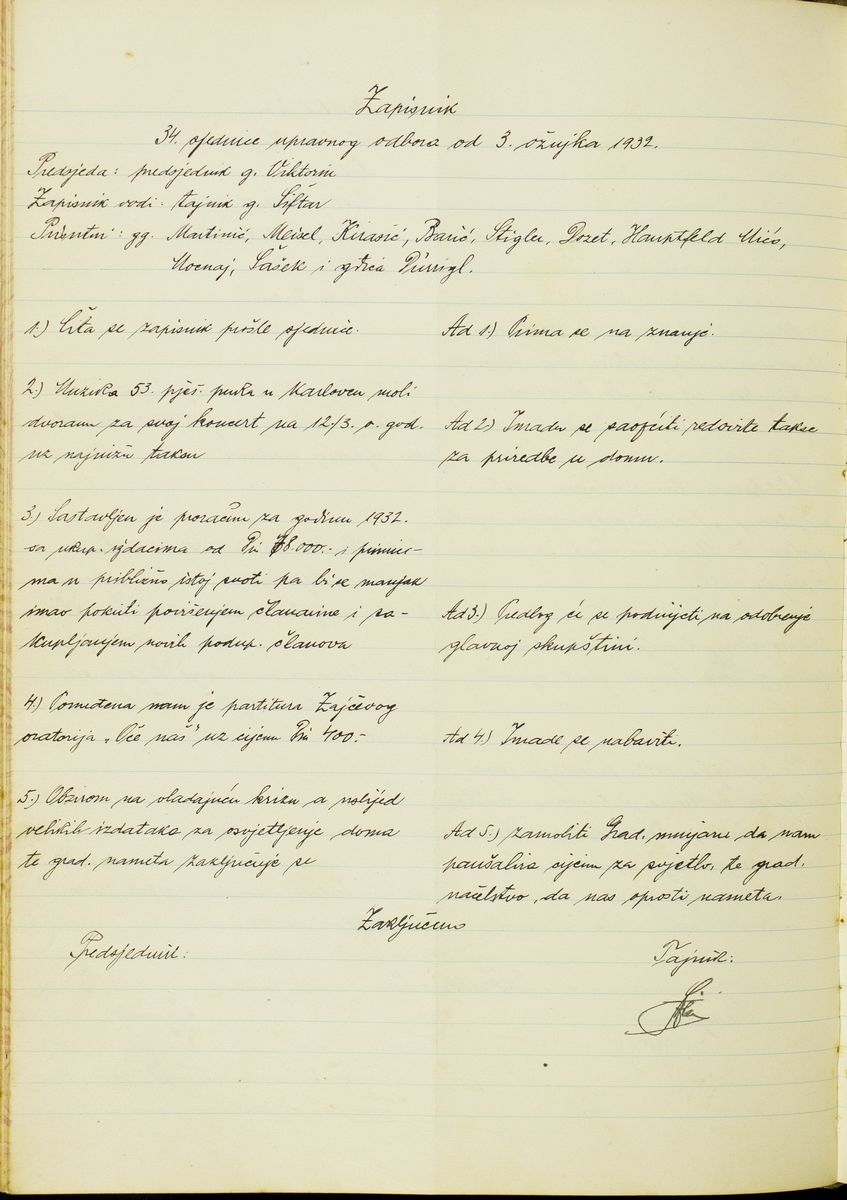 Zapisnik
34. sjednice upravnog odbora od 3. ožujka 1932.
Predsjeda: predsjednik g. Viktorin
Zapisnik vodi: tajnik g. Šiftar
Prisutni: gg. Martinić, Meisel, Kirasić, Barić, Stigler, Dozet, Hauptfeld Mićo,
Mocnaj, Šašek i gđica Dürrigl.
1.) Čita se zapisnik prošle sjednice.
Ad 1.) Prima se na znanje.
2.) Muzika 53. pješ. puka u Karlovcu moli
dvoranu za svoj koncert na 12./3. o. god.
uz najnižu taksu
Ad 2.) Imadu se saopćiti redovite takse
za priredbe u domu.
3.) Sastavljen je proračun za godinu 1932.
sa ukup. izdacima od Din 78.000.- i primici-
ma u približno istoj svoti pa bi se manjak
imao pokriti povišenjem članarine i sa-
kupljanjem novih podup. članova
Ad 3.) Predlog će se podnijeti na odobrenje
glavnoj skupštini.
4.) Ponuđena nam je partitura Zajčevog
oratorija „Oče naš" uz cijenu Din 400.-
Ad 4.) Imade se nabaviti.
5.) Obzirom na vladajuću krizu a uslijed
velikih izdataka za osvjetljenje doma
te grad. nameta zaključuje se
Ad 5.) zamoliti Grad. munjaru da nam
paušalira cijenu za svjetlo, te grad.
načelstvo, da nas oprosti nameta.
Zaključeno
Predsjednik:
Tajnik: